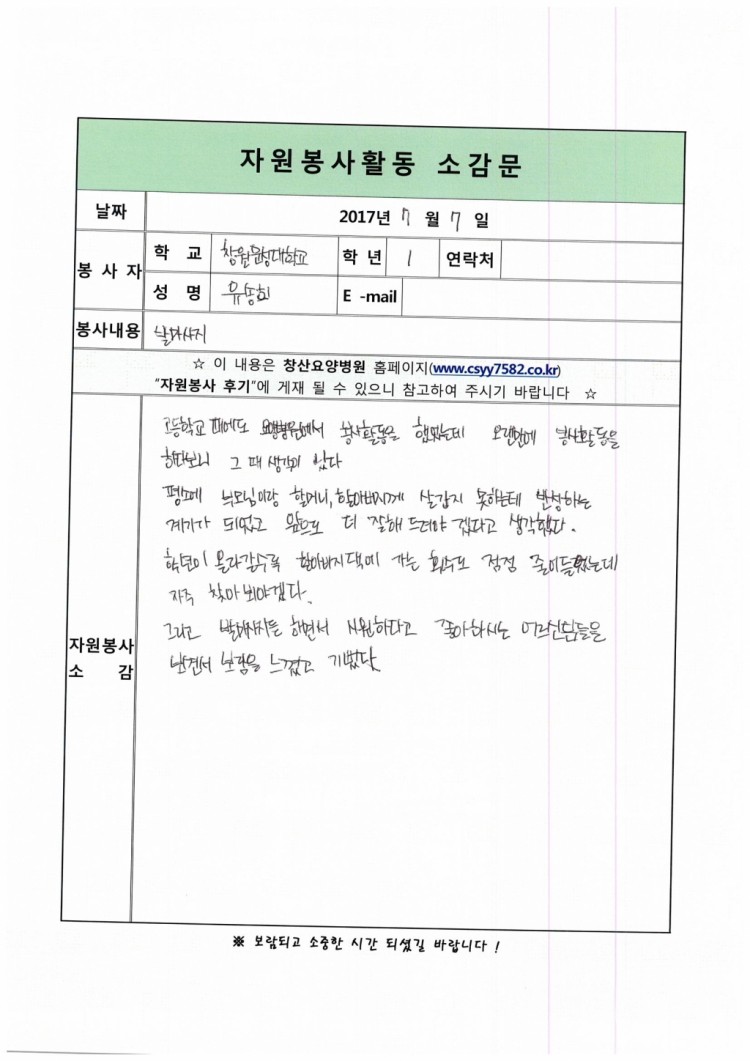 자원봉사활동 소감문
날짜 2017년 7 월 7 일
봉 사 자 학 교 창원문성대학교 학 년 1 연락처
성 명 E -mail
봉사내용 발마사지
☆ 이 내용은 창산요양병원 홈페이지(www.csyy7582.co.kr)
"자원봉사 후기"에 게재 될 수 있으니 참고하여 주시기 바랍니다 ☆
고등학교 때에도 요양병원에서 봉사활동을 했었는데 오랜만에 봉사활동을
하다보니 그 때 생각이 났다
평소에 부모님이랑 할머니, 할아버지께 살갑지 못하는데 반성하는
계기가 되었고 앞으로 더 잘해 드려야 겠다고 생각했다.
학년이 올라갈수록 할아버지댁에 가는 횟수도 점점 줄어들었는데
자주 찾아 뵈야겠다.
그리고 발마사지를 해면서 시원하다고 좋아하시는 어르신분들을
보면서 보람을 느꼈고 기뻤다.
자원봉사
소 감
※ 보람되고 소중한 시간 되셨길 바랍니다 !